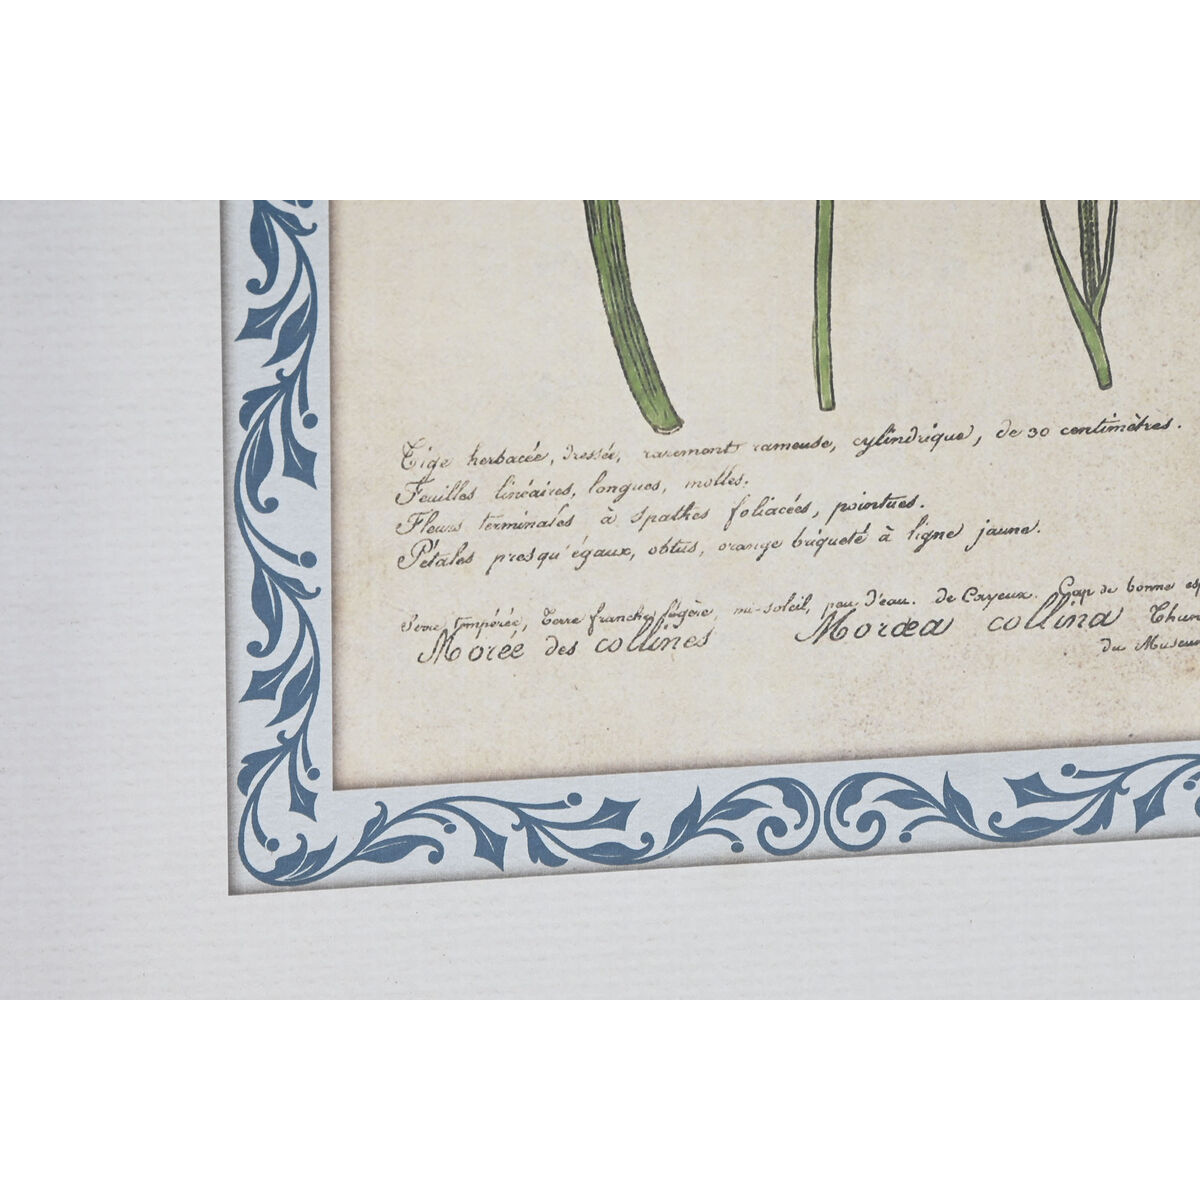 Tige herbacée, dressée, rarement rameuse, cylindrique, de 30 centimètres.
Feuilles linéaires, longues, molles.
Fleurs terminales à spathes foliacées, pointues.
Pétales presqu'égaux, obtus, orange briqueté à ligne jaune.
Serre tempérée, Terre franche légère, mi-soleil, peu d'eau. de Cayeux. Cap de bonne esp
Morée des collines Moræa collina Thun
du Museum